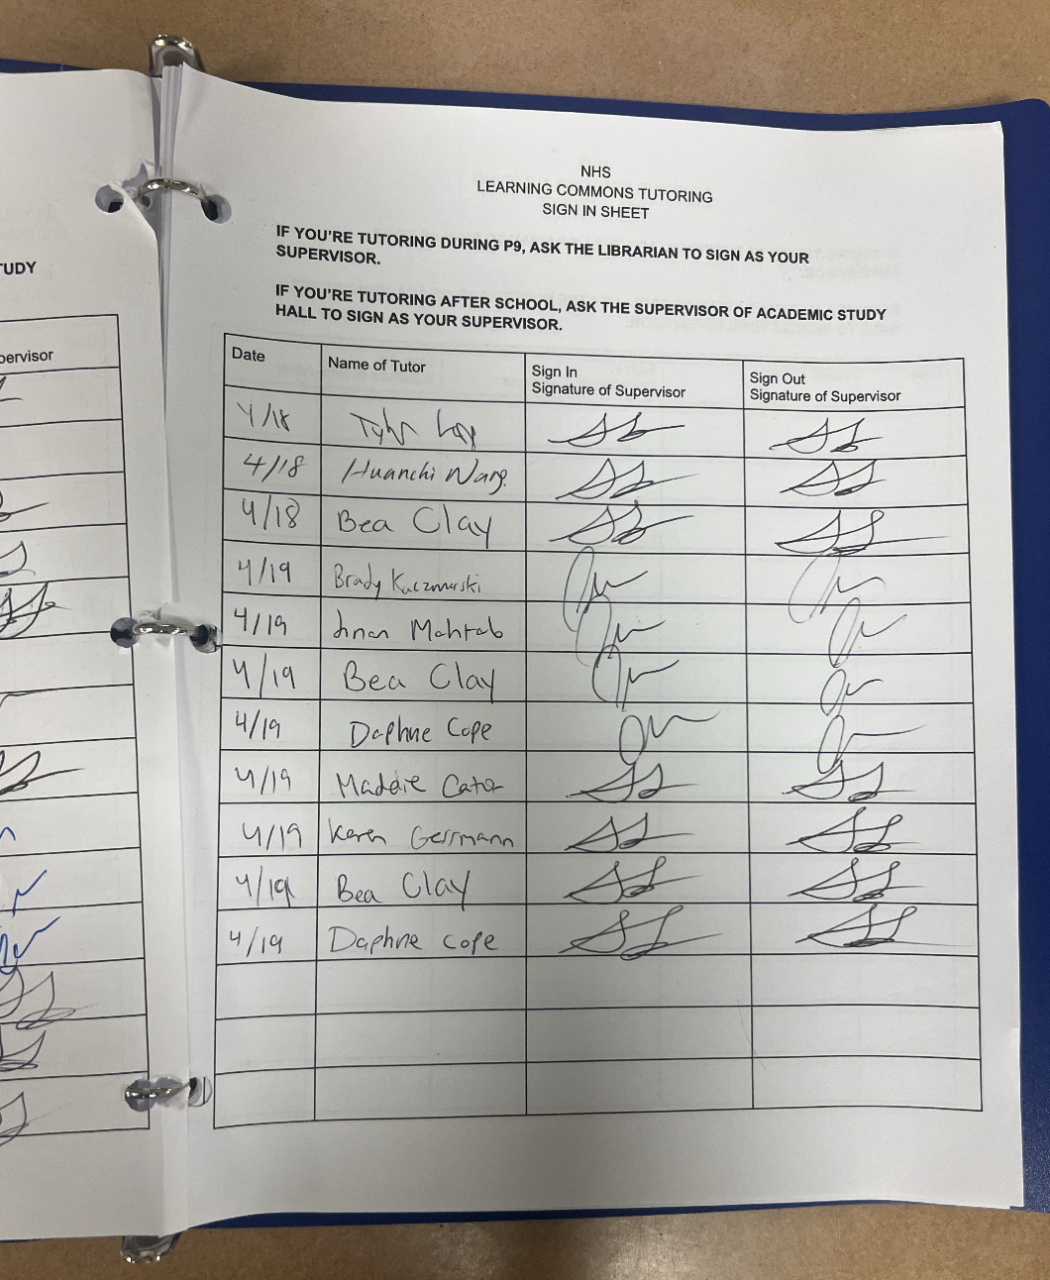 UDY
pervisor
NHS
LEARNING COMMONS TUTORING
SIGN IN SHEET
IF YOU'RE TUTORING DURING P9, ASK THE LIBRARIAN TO SIGN AS YOUR
SUPERVISOR.
IF YOU'RE TUTORING AFTER SCHOOL, ASK THE SUPERVISOR OF ACADEMIC STUDY
HALL TO SIGN AS YOUR SUPERVISOR.
Date Name of Tutor Sign In Sign Out
Signature of Supervisor Signature of Supervisor
4/18
4/18 Huanchi Wang
4/18 Bea Clay
4/19 Brady
4/19 Mahtab
4/19 Bea Clay
4/19 Daphne Cope
4/19 Maddie Cator
4/19 Karen Gerrmann
4/19 Bea Clay
4/19 Daphne Cope